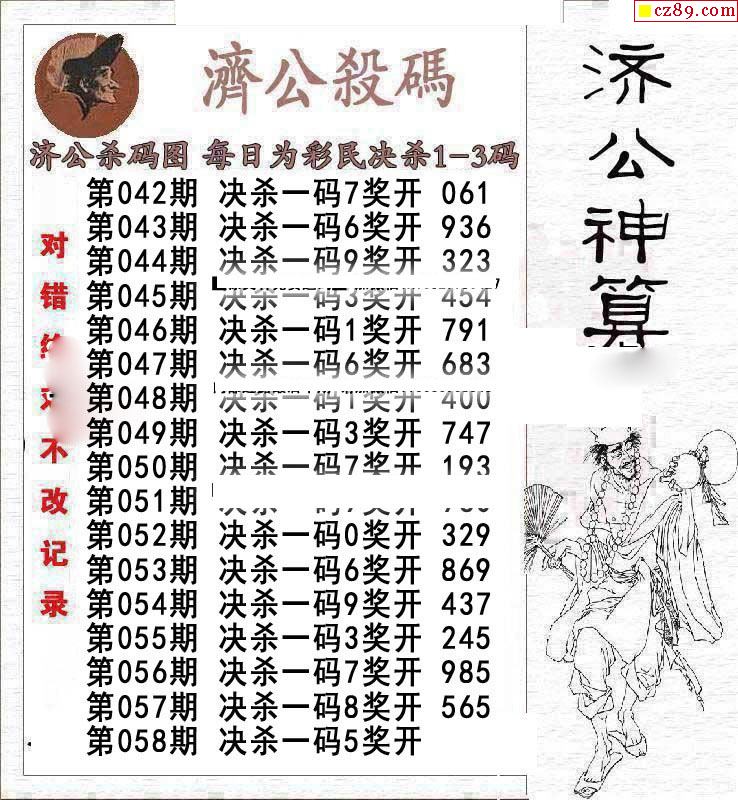 cz89.com
濟公殺碼
济公杀码图 每日为彩民决杀1-3码
第042期 决杀一码7奖开 061
第043期 决杀一码6奖开 936
第044期 决杀一码9奖开 323
第045期 决杀一码3奖开 454
第046期 决杀一码1奖开 791
第047期 决杀一码6奖开 683
第048期 决杀一码1奖开 400
第049期 决杀一码3奖开 747
第050期 决杀一码7奖开 193
第051期
第052期 决杀一码0奖开 329
第053期 决杀一码6奖开 869
第054期 决杀一码9奖开 437
第055期 决杀一码3奖开 245
第056期 决杀一码7奖开 985
第057期 决杀一码8奖开 565
第058期 决杀一码5奖开
对错
不改记录
济公神算